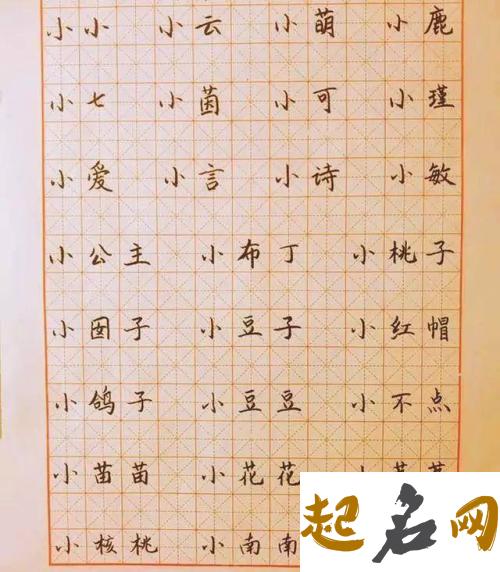 小小 小云 小萌 小鹿
小七 小茵 小可 小瑾
小爱 小言 小诗 小敏
小公主 小布丁 小桃子
小囡子 小豆子 小红帽
小鸽子 小豆豆 小不点
小苗苗 小花花
小核桃 小南南
起名网